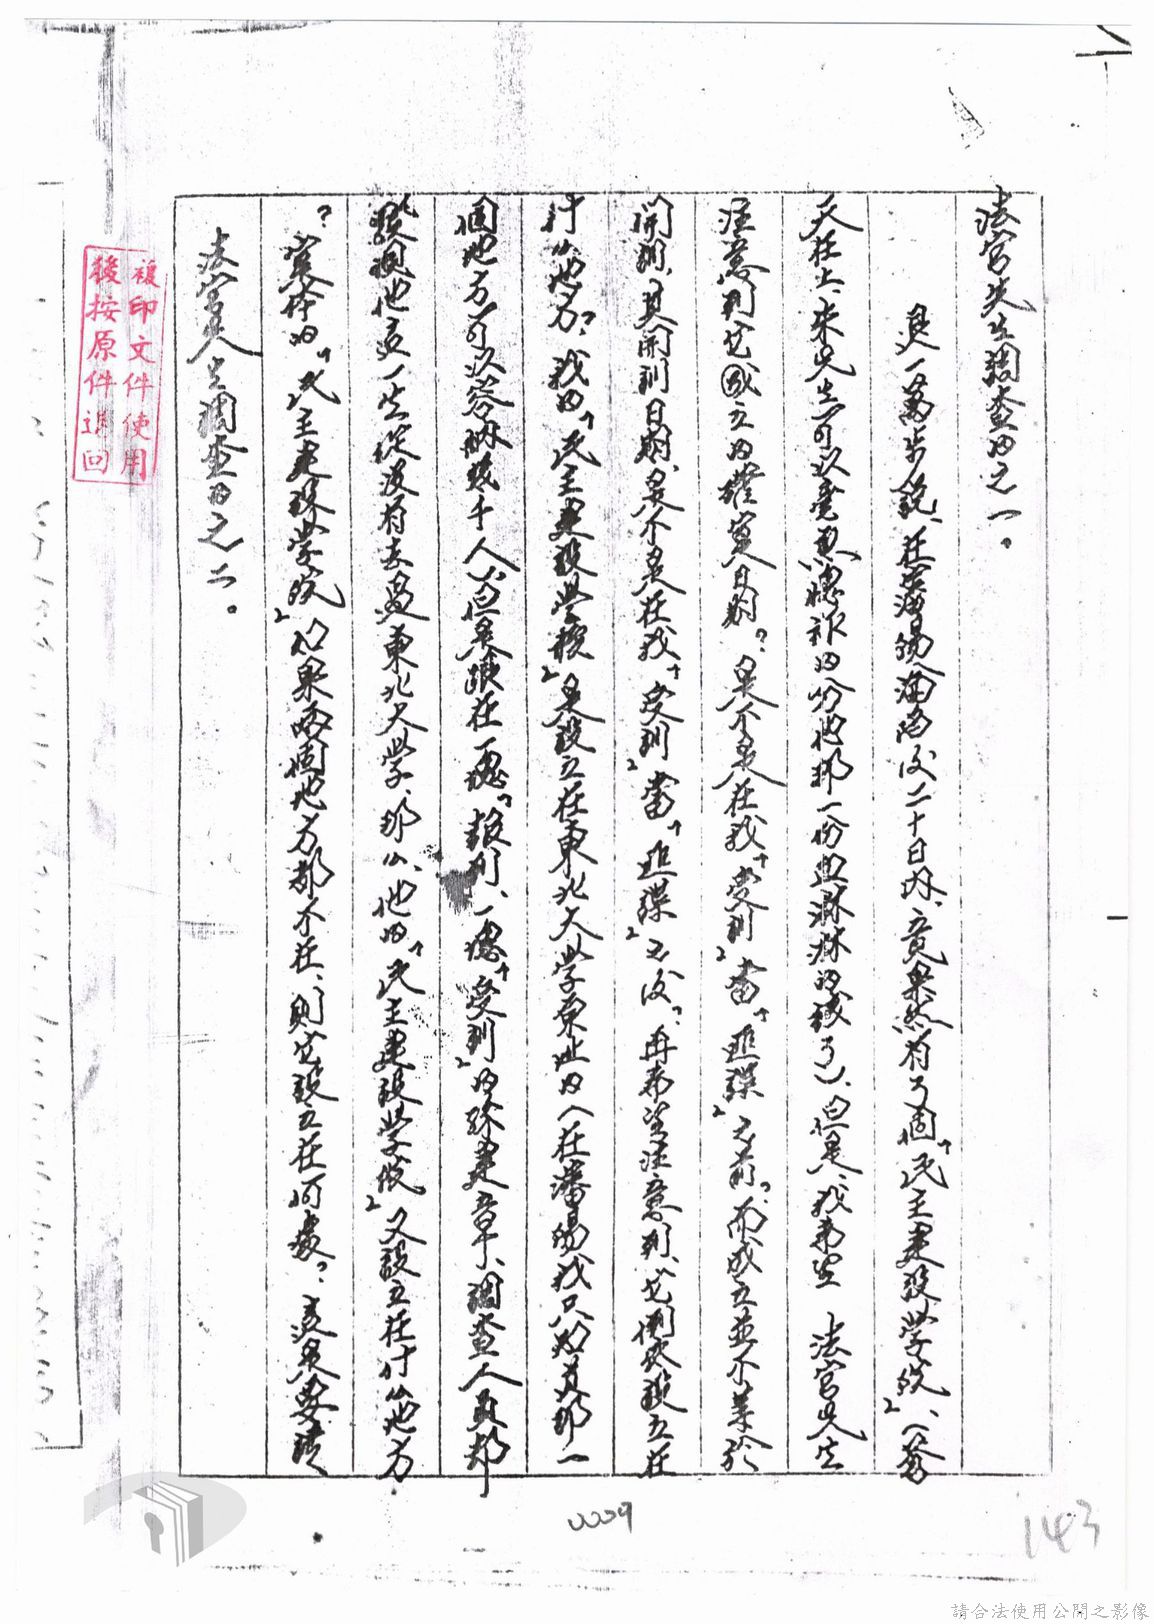 法官先生調查的之一。
退一萬步說，在瀋陽淪陷後二十日內，竟果然有了個「民主建設學院」（蒼
天在上，朱先生可以喪心　的分他那一份血淋淋的錢了），但是，我希望　法官先生
注意到它成立的確實日期？是不是在我「受訓」當「匪諜」之前？而成立並不等於
開訓，其開訓日期，是不是在我「受訓」當「匪諜」之後？再希望注意到，它倒底設立在
什么地方？我的「民主建設學校」是設立在東北大學原址的（在瀋陽我只知道那一
個地方可以容納幾千人），但是跟在一塊「報到」，一塊「受訓」的孫建章，調查人員都
說他這一生從沒有去過東北大學，那么，他的「民主建設學校」又設立在什么地方
？寔存的「民主建設學院」，如果兩個地方都不在，則它設立在何處？這是要請
法官先生調查的之二。
複印文件使用
後按原件退回
0009
143
請合法使用公開之影像